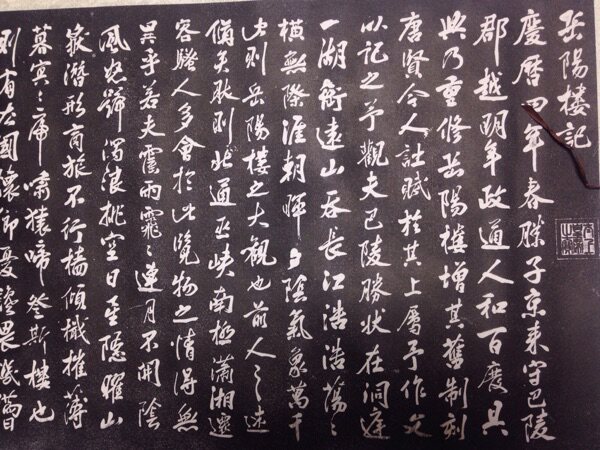 岳陽樓記
慶曆四年春滕子京来守巴陵
郡越明年政通人和百廢具
興乃重修岳陽樓增其舊制刻
唐賢今人詩賦於其上屬予作文
以記之予觀夫巴陵勝状在洞庭
一湖銜遠山吞長江浩浩蕩々
橫無際涯朝暉夕陰氣象萬千
此則岳陽樓之大觀也前人之述
備矣然則北通巫峽南極瀟湘遷
客騷人多會於此覽物之情得無
異乎若夫霪雨霏々連月不開陰
風怒號濁浪排空日星隱曜山
嶽潛形商旅不行檣傾檝摧薄
暮冥々虎嘯猿啼登斯樓也
則有去國懷鄉憂讒畏譏滿目